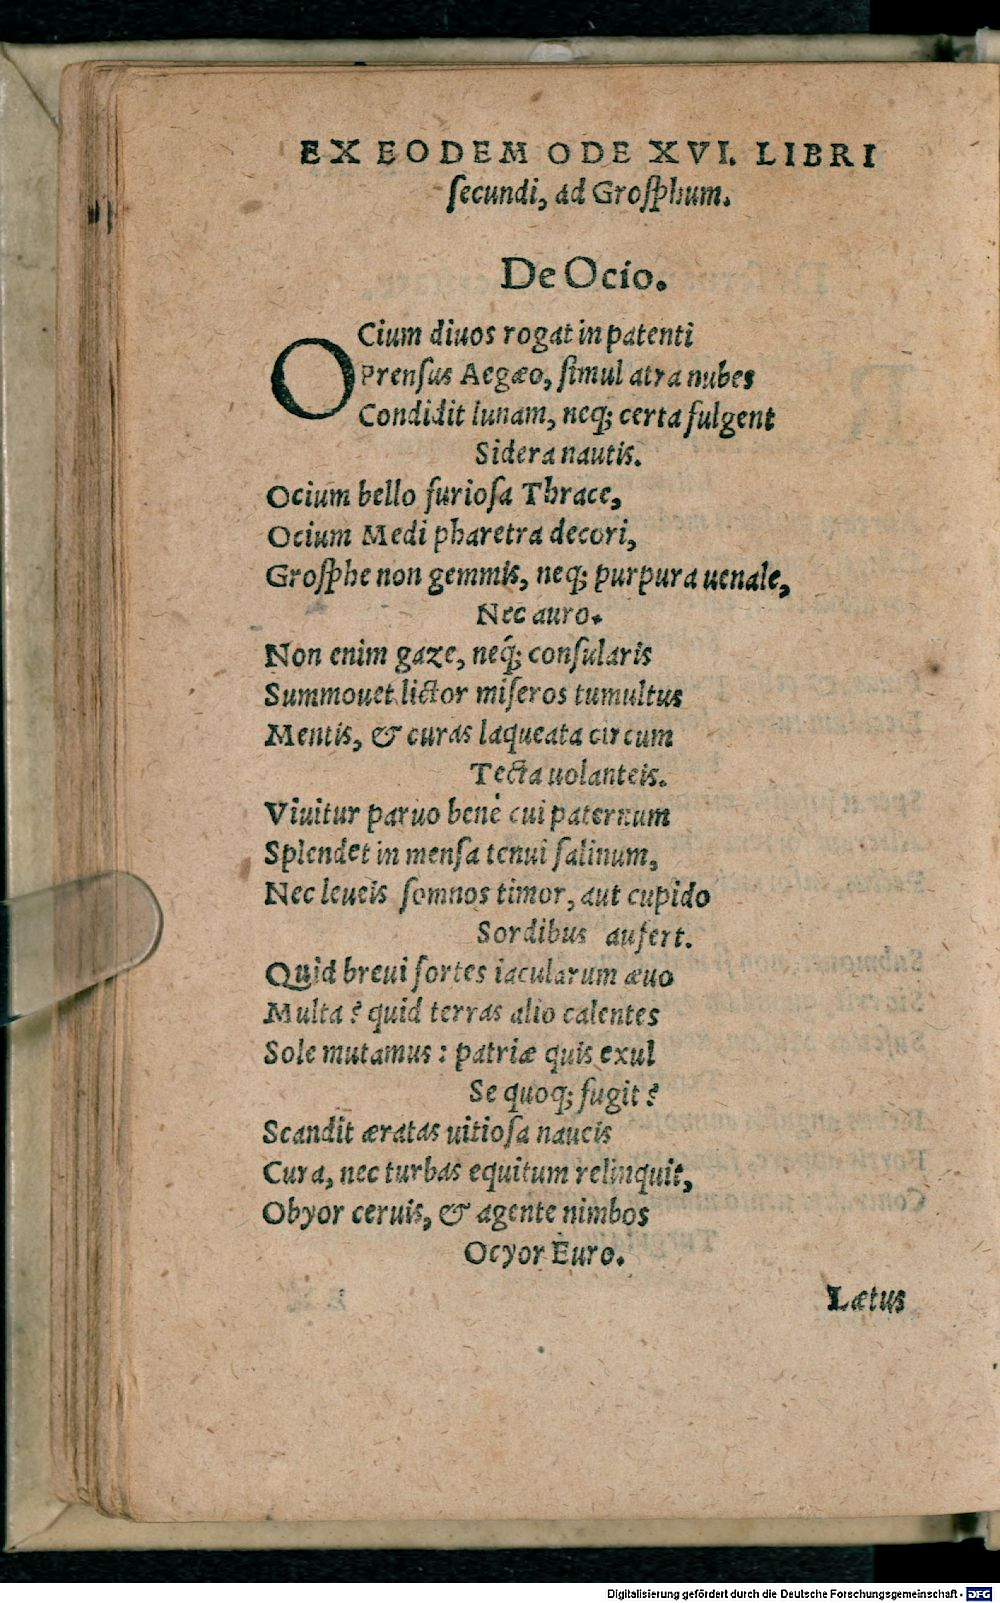 EX EODEM ODE XVI. LIBRI
ſecundi, ad Groſphum.
De Ocio.
OCium diuos rogat in patenti
Prenſus Aegæo, ſimul atra nubes
Condidit lunam, neq; certa fulgent
Sidera nautis.
Ocium bello furioſa Thrace,
Ocium Medi pharetra decori,
Groſphe non gemmis, neq; purpura uenale,
Nec auro.
Non enim gaze, neq́; conſularis
Summouet lictor miſeros tumultus
Mentis, & curas laqueata circum
Tecta uolanteis.
Viuitur paruo benè cui paternum
Splendet in menſa tenui ſalinum,
Nec leueis ſomnos timor, aut cupido
Sordibus aufert.
Quid breui fortes iacularum æuo
Multa? quid terras alio calentes
Sole mutamus: patriæ quis exul
Se quoq; fugit?
Scandit æratas uitioſa naueis
Cura, nec turbas equitum relinquit,
Obyor ceruis, & agente nimbos
Ocyor Euro.
Lætus
Digitalisierung gefördert durch die Deutsche Forschungsgemeinschaft - DFG